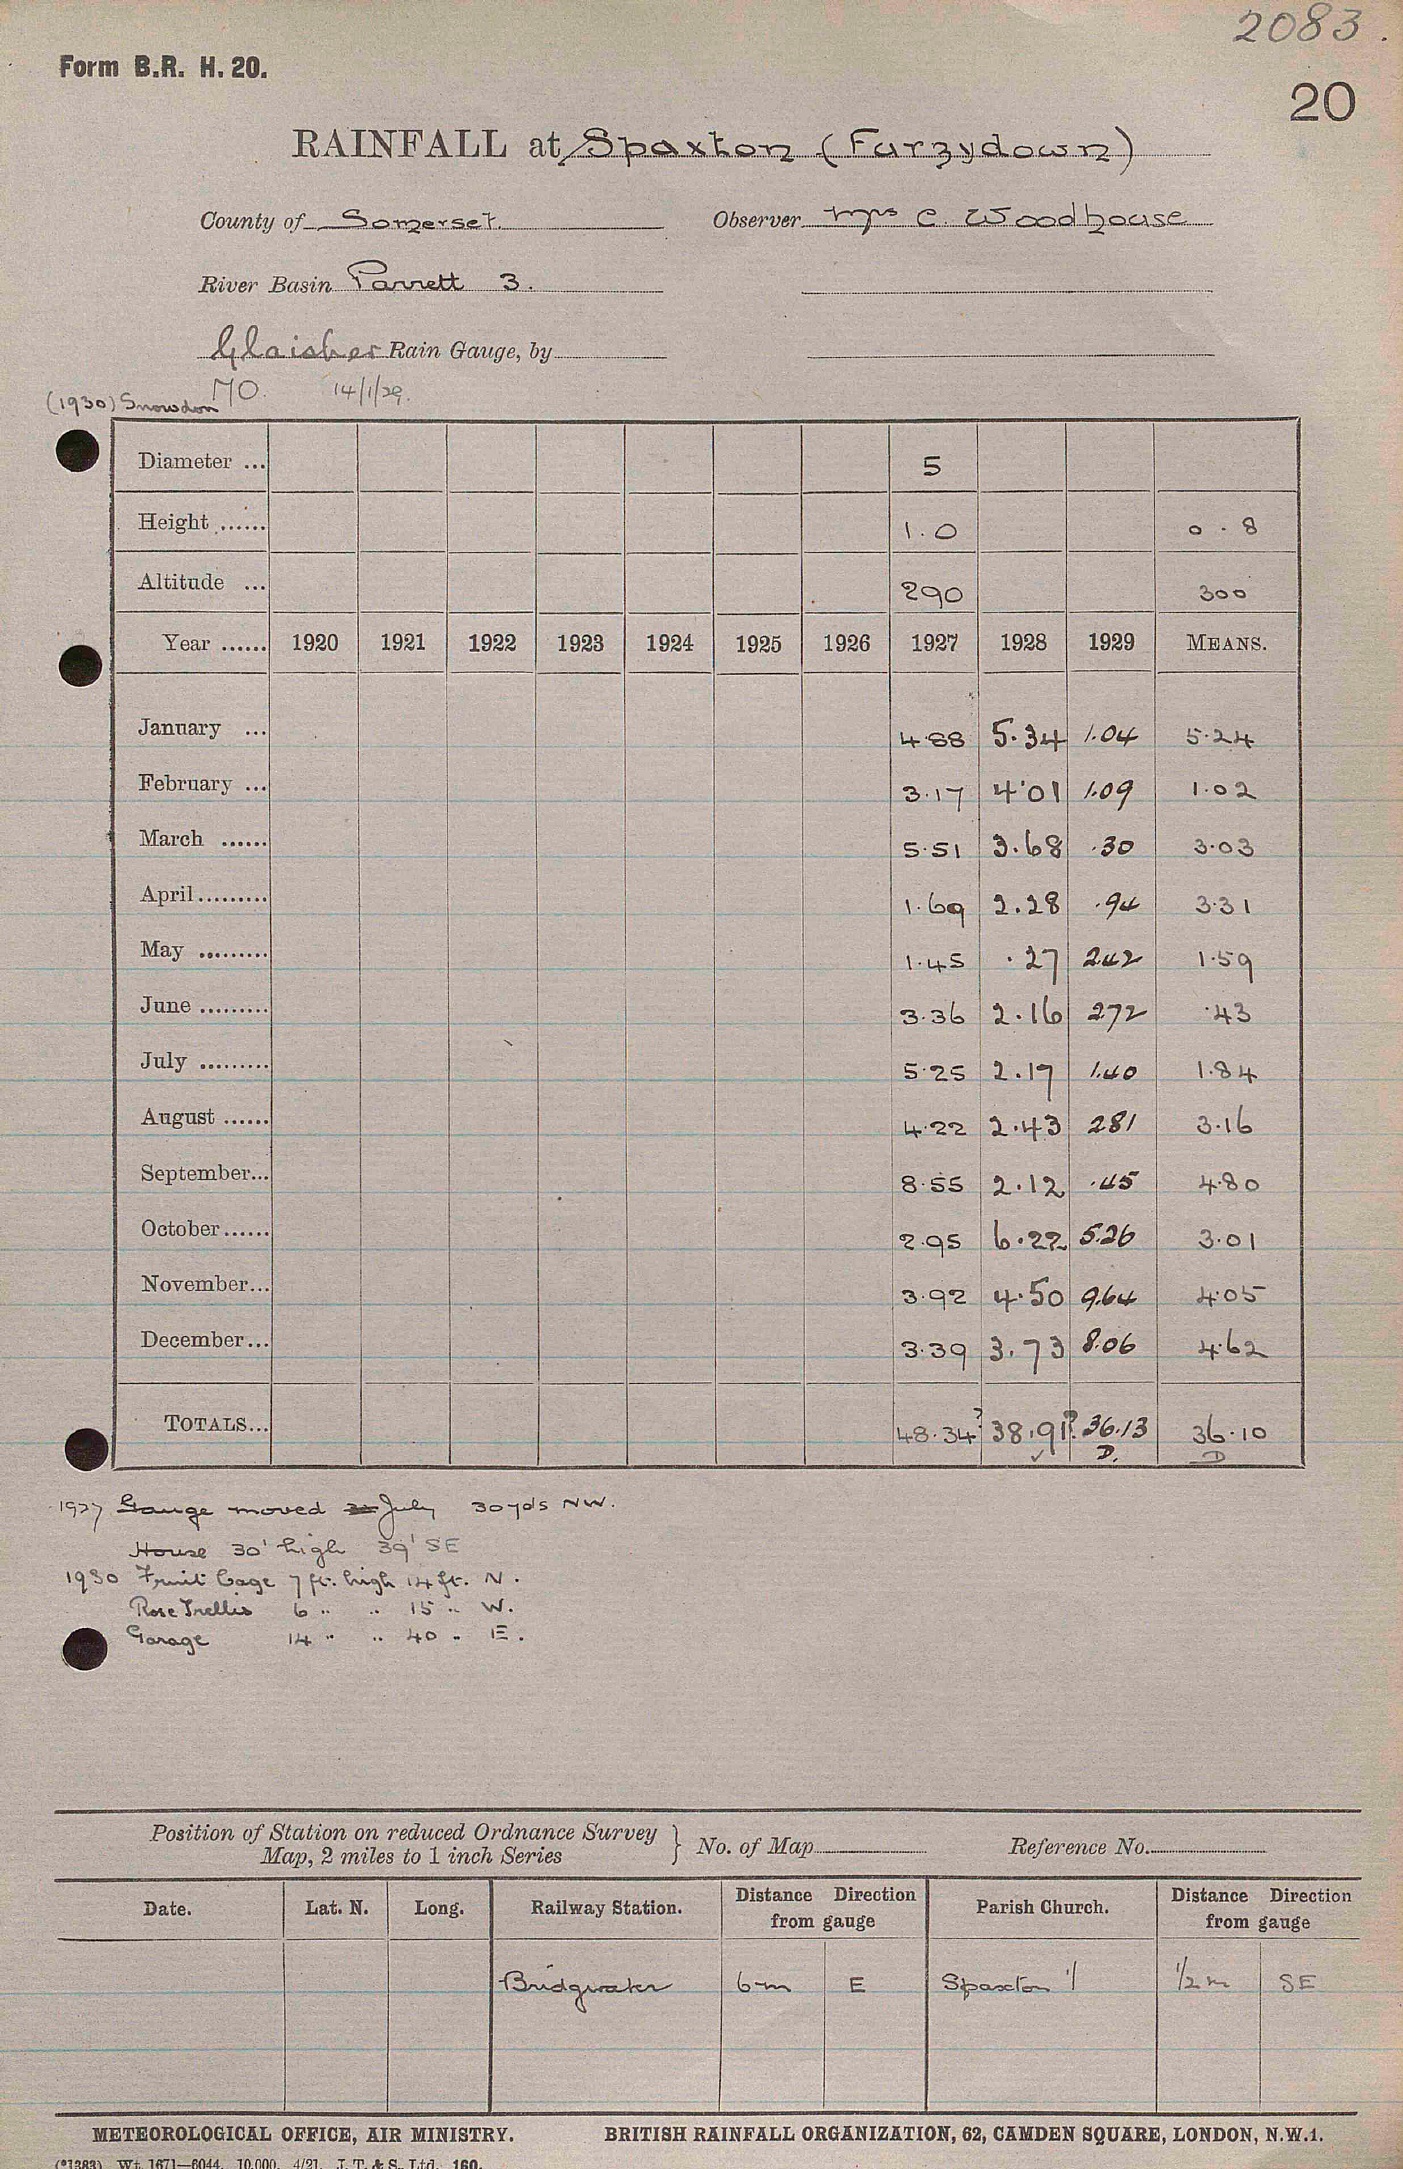 2083.
Form B.R. H. 20.
20
RAINFALL at Spaxton (Furzydown)
County of Somerset. Observer Mrs C. Woodhouse
River Basin Parrett 3.
Glaisher Rain Gauge, by
(1930) Snowdon MO. 14/1/29.
Diameter ... 5
Height ...... 1.0 0.8
Altitude ... 290 300
Year ...... 1920 1921 1922 1923 1924 1925 1926 1927 1928 1929 MEANS.
January ... 4.88 5.34 1.04 5.24
February ... 3.17 4.01 1.09 1.02
March ...... 5.51 3.68 .30 3.03
April......... 1.69 2.28 .94 3.31
May ......... 1.45 .27 2.42 1.59
June ......... 3.36 2.16 272 .43
July ......... 5.25 2.17 1.40 1.84
August ...... 4.22 2.43 281 3.16
September... 8.55 2.12 .45 4.80
October...... 2.95 6.22 5.26 3.01
November... 3.92 4.50 9.64 4.05
December... 3.39 3.73 8.06 4.62
TOTALS... 48.34? 38.91? 36.13 36.10
✓ D. D
1927 Gauge moved July 30yds NW.
House 30' high 39' SE
1930 Fruit Cage 7 ft. high 14 ft. N.
Rose Trellis 6 " " 15 " W.
Garage 14 " " 40 " E.
Position of Station on reduced Ordnance Survey
Map, 2 miles to 1 inch Series } No. of Map Reference No.
Date. Lat. N. Long. Railway Station. Distance Direction from gauge Parish Church. Distance Direction from gauge
Bridgwater 6 m E Spaxton 1/2 m SE
METEOROLOGICAL OFFICE, AIR MINISTRY. BRITISH RAINFALL ORGANIZATION, 62, CAMDEN SQUARE, LONDON, N.W.1.
(*1383) Wt. 1671—6044. 10,000. 4/21. J. T. & S., Ltd. 160.